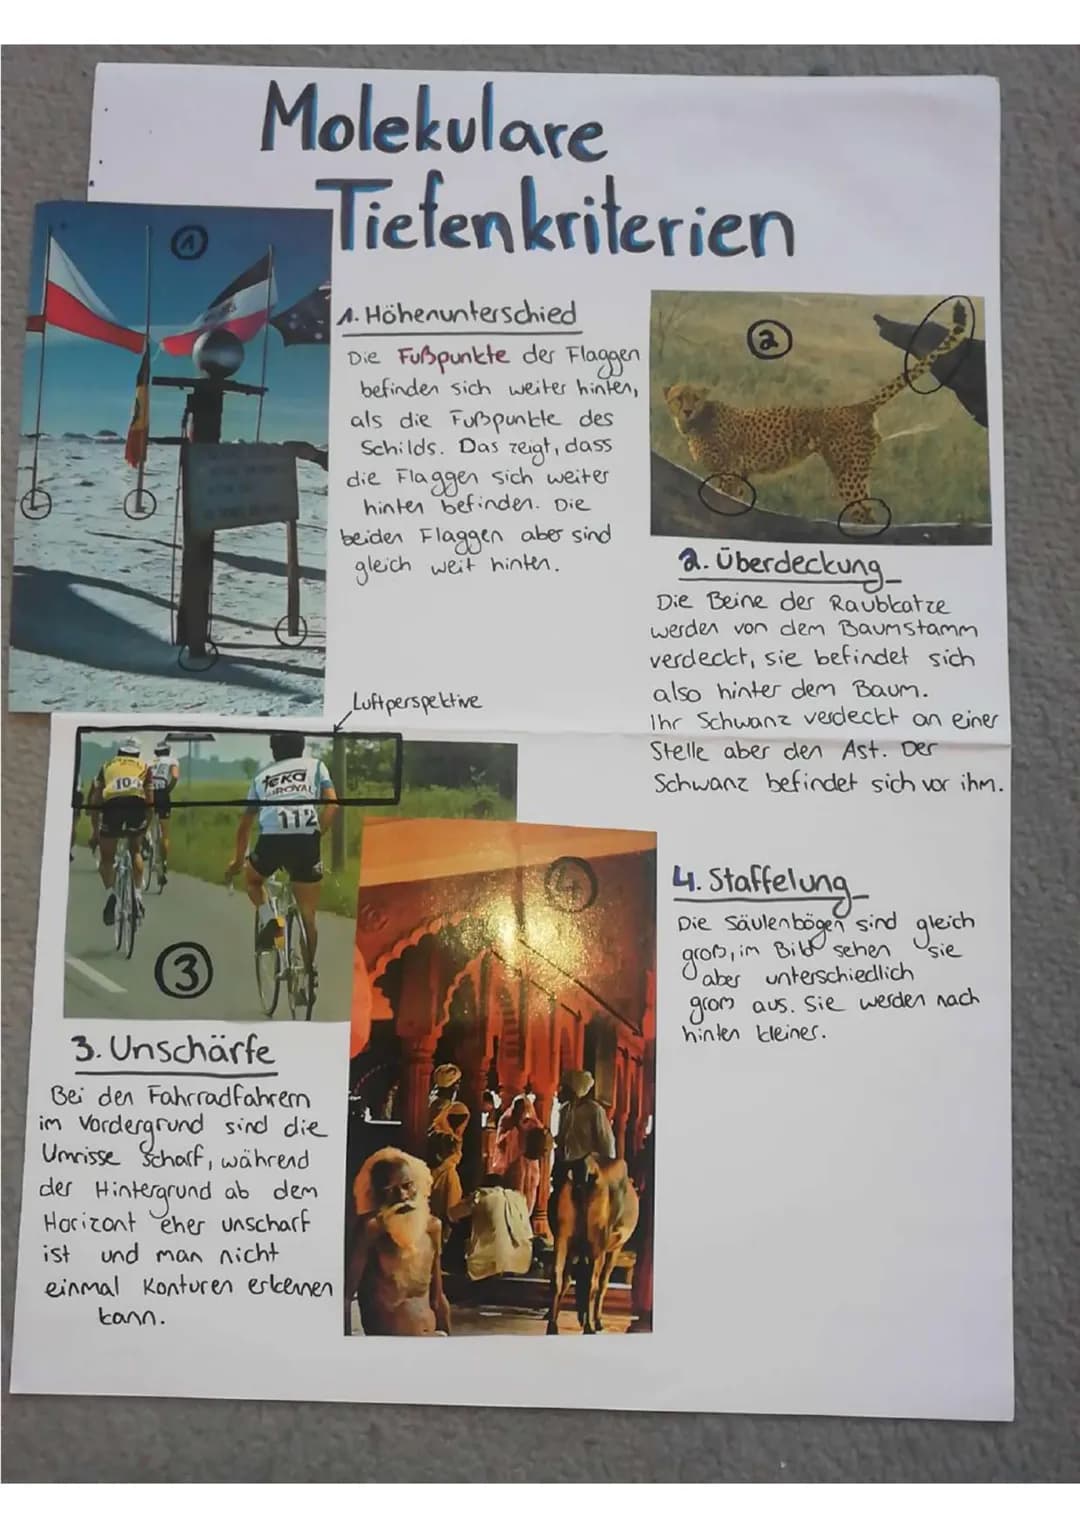 Molekulare
Tiefenkriterien
1
1. Höhenunterschied
Die Fußpunkte der Flaggen
befinden sich weiter hinten,
als die Fußpunkte des
Schilds. Das zeigt, dass
die Flaggen sich weiter
hinten befinden. Die
beiden Flaggen aber sind
gleich weit hinten.
2
2. Überdeckung
Die Beine der Raubkatze
werden von dem Baumstamm
verdeckt, sie befindet sich
also hinter dem Baum.
Ihr Schwanz verdeckt an einer
Stelle aber den Ast. Der
Schwanz befindet sich vor ihm.
Luftperspektive
teka
112
3
3. Unschärfe
Bei den Fahrradfahrern
im Vordergrund sind die
Umrisse scharf, während
der Hintergrund ab dem
Horizont eher unscharf
ist und man nicht
einmal Konturen erkennen
kann.
4
4. Staffelung
Die Säulenbögen sind gleich
groß, im Bild sehen sie
aber unterschiedlich
groß aus. Sie werden nach
hinten kleiner.